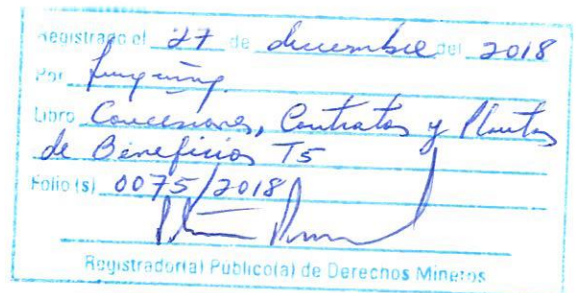 Registrado el 27 de diciembre del 2018
Por
Libro Concesiones, Contratos y Plantas
de Beneficios T5
Folio (s) 0075/2018
Registrador(a) Público(a) de Derechos Mineros